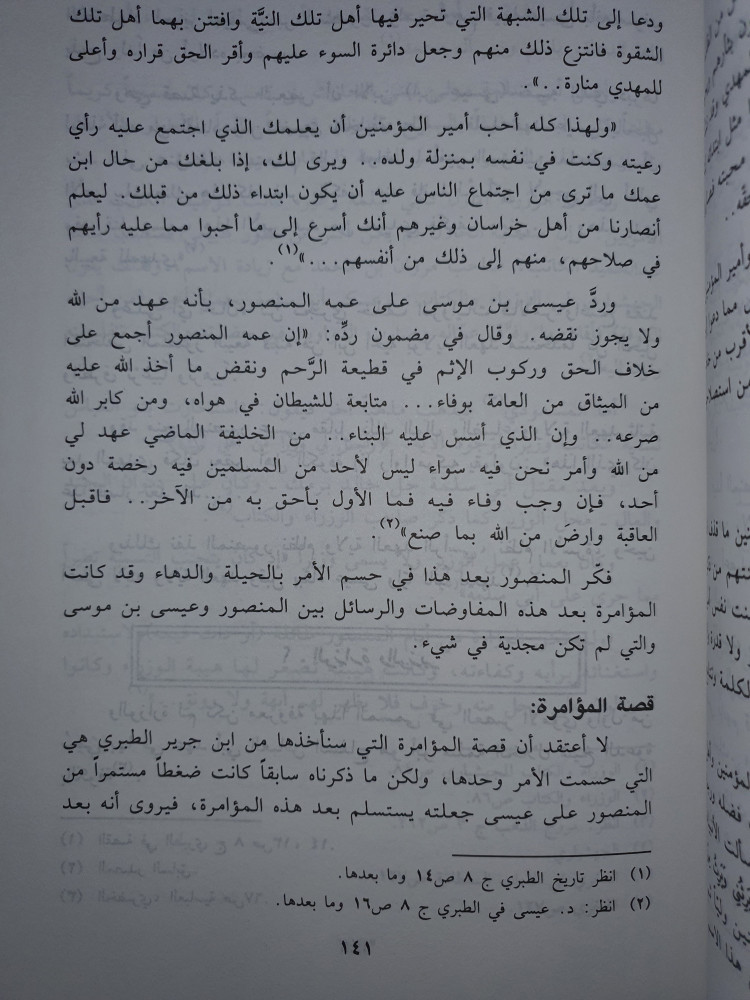 ودعا إلى تلك الشبهة التي تحير فيها أهل تلك النيَّة وافتتن بهما أهل تلك
الشقوة فانتزع ذلك منهم وجعل دائرة السوء عليهم وأقر الحق قراره وأعلى
للمهدي منارة..».
«ولهذا كله أحب أمير المؤمنين أن يعلمك الذي اجتمع عليه رأي
رعيته وكنت في نفسه بمنزلة ولده.. ويرى لك، إذا بلغك من حال ابن
عمك ما ترى من اجتماع الناس عليه أن يكون ابتداء ذلك من قبلك. ليعلم
أنصارنا من أهل خراسان وغيرهم أنك أسرع إلى ما أحبوا مما عليه رأيهم
في صلاحهم، منهم إلى ذلك من أنفسهم...»(١).
وردَّ عيسى بن موسى على عمه المنصور، بأنه عهد من الله
ولا يجوز نقضه. وقال في مضمون ردِّه: «إن عمه المنصور أجمع على
خلاف الحق وركوب الإثم في قطيعة الرَّحم ونقض ما أخذ الله عليه
من الميثاق من العامة بوفاء... متابعة للشيطان في هواه، ومن كابر الله
صرعه.. وإن الذي أسس عليه البناء.. من الخليفة الماضي عهد لي
من الله وأمر نحن فيه سواء ليس لأحد من المسلمين فيه رخصة دون
أحد، فإن وجب وفاء فيه فما الأول بأحق به من الآخر.. فاقبل
العاقبة وارضَ من الله بما صنع»(٢).
فكّر المنصور بعد هذا في حسم الأمر بالحيلة والدهاء وقد كانت
المؤامرة بعد هذه المفاوضات والرسائل بين المنصور وعيسى بن موسى
والتي لم تكن مجدية في شيء.
قصة المؤامرة:
لا أعتقد أن قصة المؤامرة التي سنأخذها من ابن جرير الطبري هي
التي حسمت الأمر وحدها، ولكن ما ذكرناه سابقاً كانت ضغطاً مستمراً من
المنصور على عيسى جعلته يستسلم بعد هذه المؤامرة، فيروى أنه بعد
(١) انظر تاريخ الطبري ج ٨ ص١٤ وما بعدها.
(٢) انظر: د. عيسى في الطبري ج ٨ ص١٦ وما بعدها.
١٤١